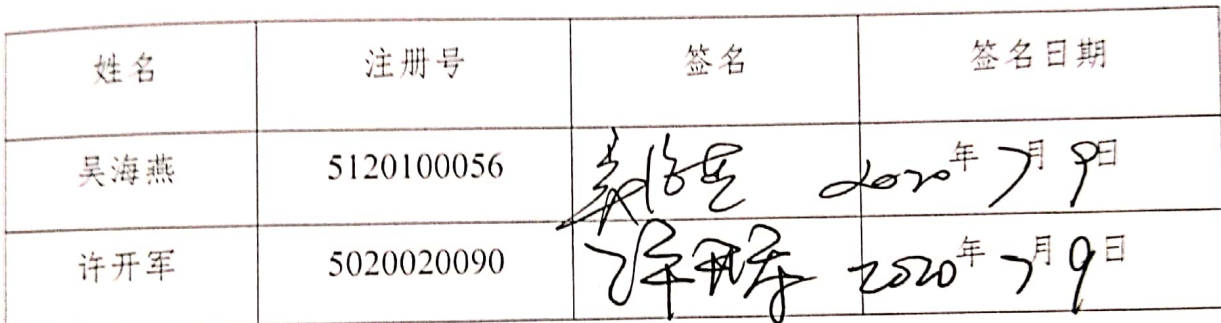 姓名 注册号 签名 签名日期
吴海燕 5120100056 2020年7月9日
许开军 5020020090 许开军 2020年7月9日